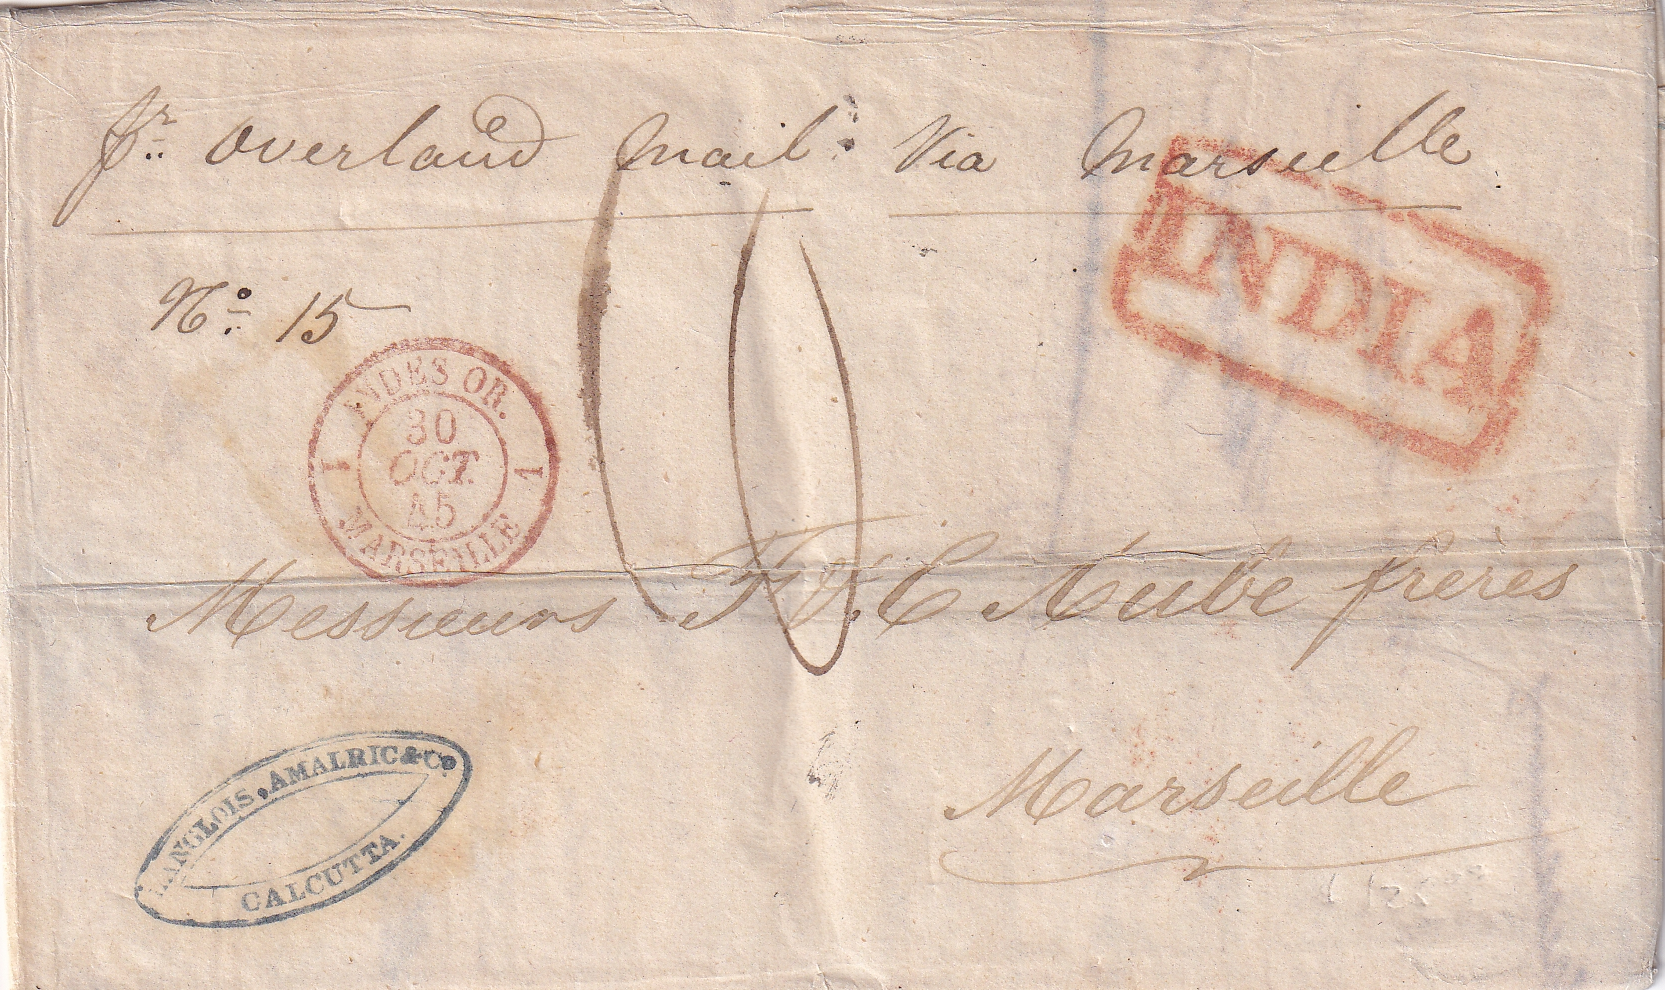 pr. Overland Mail: Via Marseille.
No. 15
INDIA
1 INDES OR. 1
30
OCT.
45
MARSEILLE
10
Messieurs F & C Aube frères
Marseille
LANGLOIS, AMALRIC & Co
CALCUTTA.